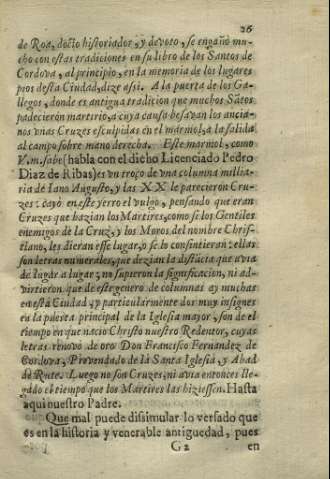 26
de Roa, docto historiador, y devoto, se engañò mu-
cho con estas tradiciones en su libro de los Santos de
Cordova, al principio, en la memoria de los lugares
pios desta Ciudad, dize assi. A la puerta de los Ga-
llegos, donde es antigua tradicion que muchos Sãtos
padecieron martirio, a cuya causa besavan los ancia-
nos vnas Cruzes esculpidas en el marmol, a la salida
al campo sobre mano derecha. Este marmol, como
V.m. sabe (habla con el dicho Licenciado Pedro
Diaz de Ribas) es vn troço de vna columna millia-
ria de Iano Augusto, y las XX le parecieron Cru-
zes: cayò en este yerro el vulgo, pensando que eran
Cruzes que hazian los Martires, como si los Gentiles
enemigos de la Cruz, y los Moros del nombre Chris-
tiano, les dieran esse lugar, ò se lo consintieran: ellas
son letras numerales, que dezian la distãcia que avia
de lugar a lugar; no supieron la significacion, ni ad-
virtieron que de este genero de columnas ay muchas
en esta Ciudad, y particularmente dos muy insignes
en la puerta principal de la Iglesia mayor, son de el
tiempo en que nacio Christo nuestro Redentor, cuyas
letras renovo de oro Don Francisco Fernandez de
Cordova, Prevendado de la Santa Iglesia, y Abad
de Rute. Luego no son Cruzes, ni avia entonces lle-
gado el tiempo que los Martires las hiziessen. Hasta
aqui nuestro Padre.
Que mal puede dissimular lo versado que
es en la historia y venerable antiguedad, pues
G2 en